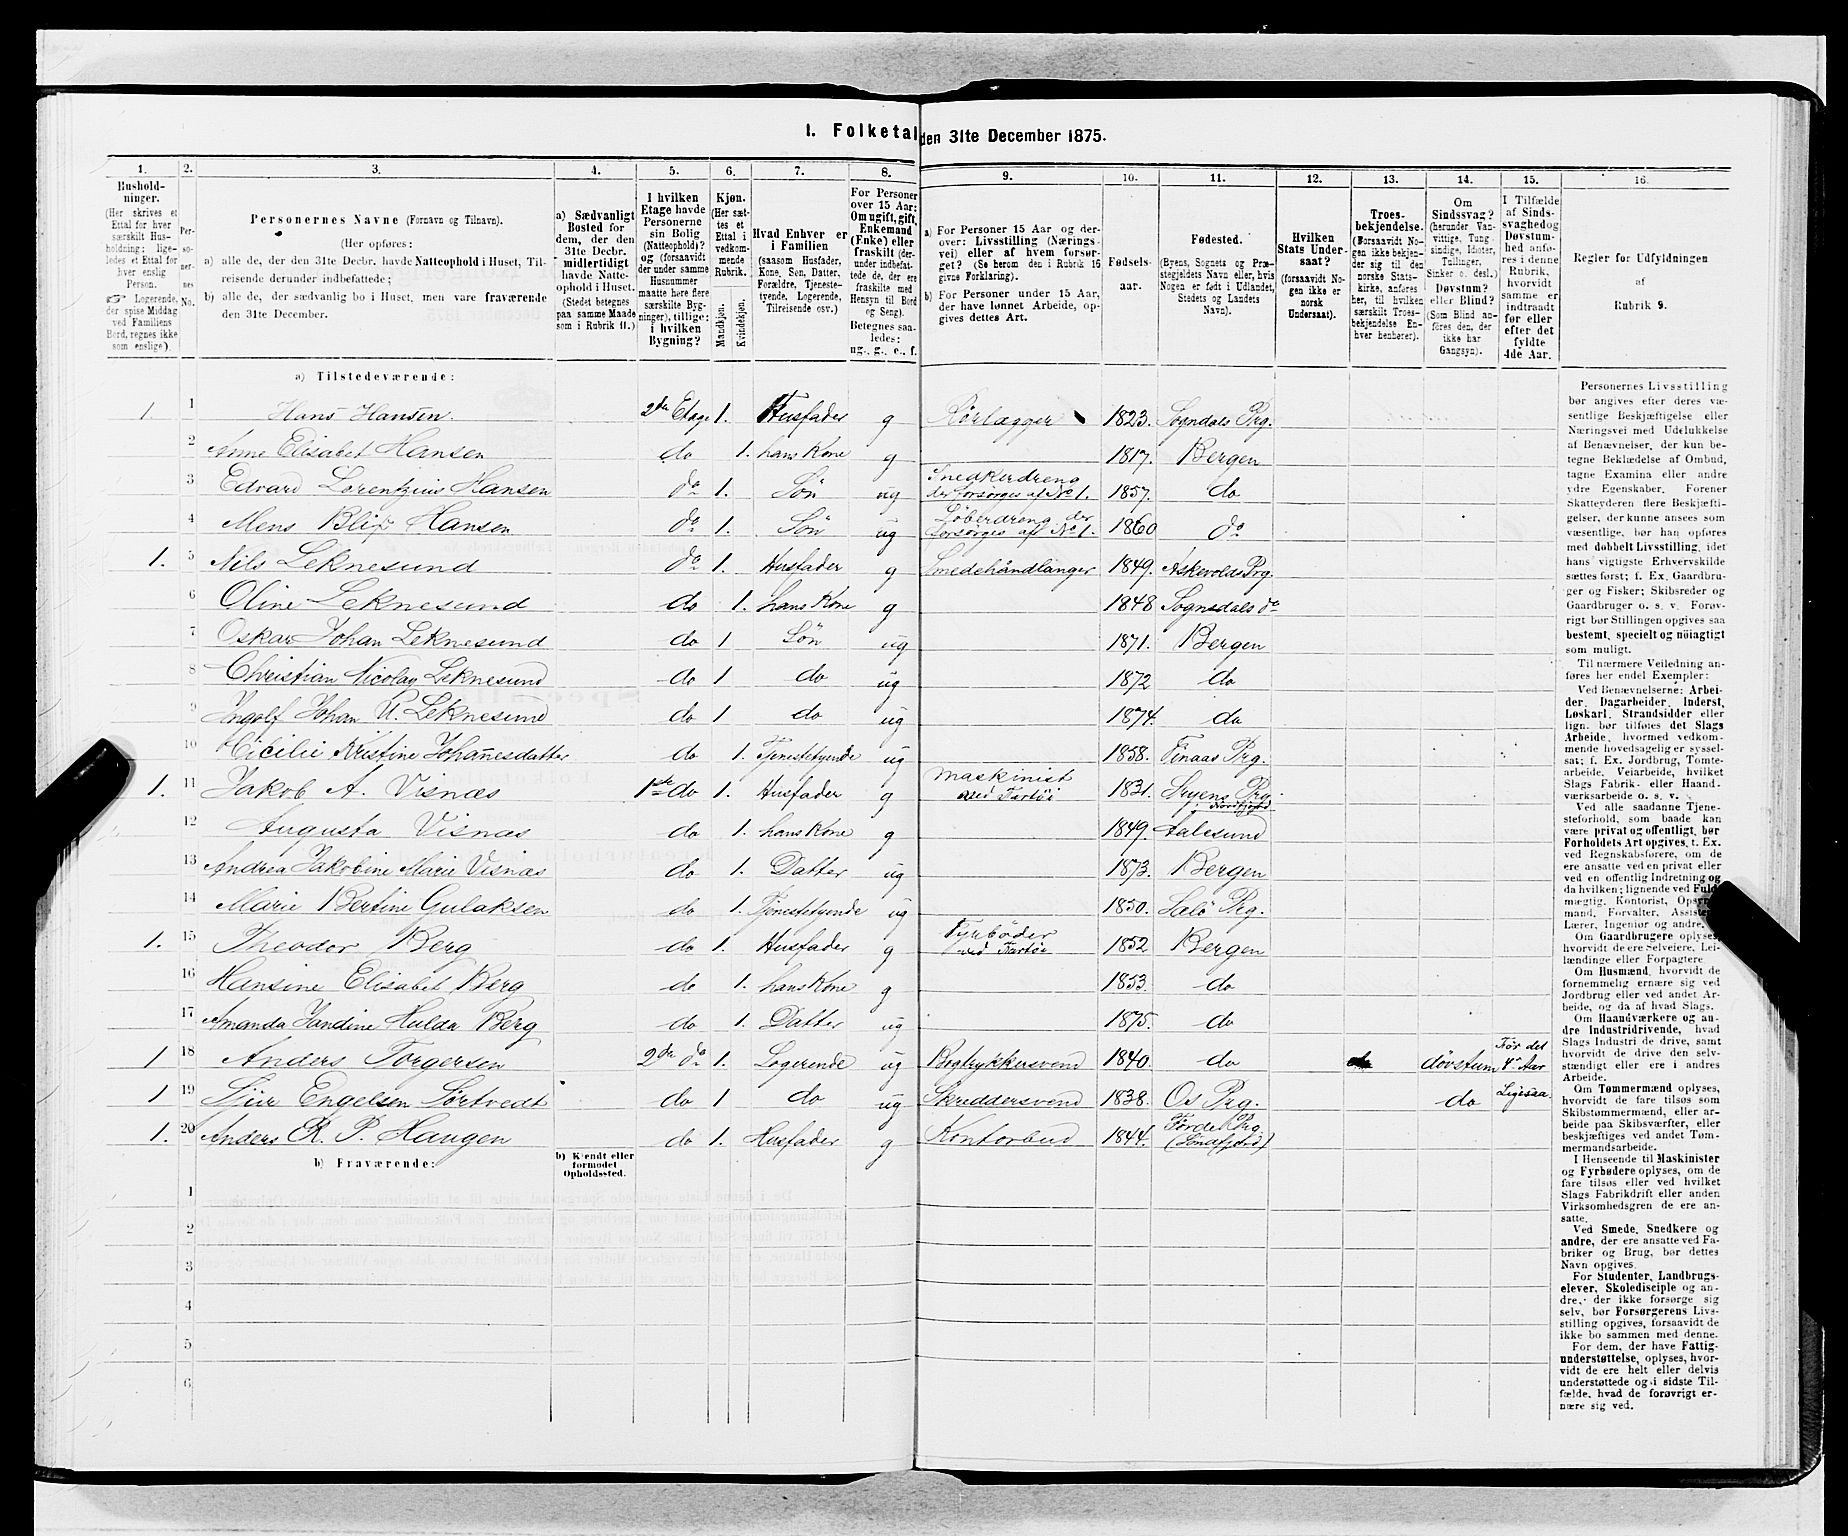 I. Folketal den 31te December 1875.
1. 2. 3. 4. 5. 6. 7. 8. 9. 10. 11. 12. 13. 14. 15. 16.
Hushold-
ninger.
(Her skrives et
Ettal for hver
særskilt Hus-
holdning; lige-
ledes et Ettal for
hver enslig
Person.
☞ Logerende,
der spise Middag
ved Familiens
Bord, regnes ikke
som enslige).
Per-
so-
ner-
nes
No.
Personernes Navne (Fornavn og Tilnavn).
(Her opføres:
a) alle de, der den 31te Decbr. havde Natteophold i Huset, Til-
reisende derunder indbefattede;
b) alle de, der sædvanlig bo i Huset, men vare fraværende
den 31te December.
a) Sædvanligt
Bosted for
dem, der den
31te Decbr.
midlertidigt
havde Natte-
ophold i Huset.
(Stedet betegnes
paa samme Maade
som i Rubrik 11.)
I hvilken
Etage havde
Personerne
sin Bolig
(Natteophold)?
og (forsaavidt
der under samme
Husnummer
maatte høre flere
særskilte Byg-
ninger), tillige:
i hvilken
Bygning?
Kjøn.
(Her sæt-
tes et
Ettal i
vedkom-
mende
Rubrik.
Mandkjøn.
Kvindekjøn.
Hvad Enhver er
i Familien
(saasom Husfader,
Kone, Søn, Datter,
Forældre, Tjeneste-
tyende, Logerende,
Tilreisende osv.)
For Personer
over 15 Aar:
Om ugift, gift,
Enkemand
(Enke) eller
fraskilt (der-
under indbefat-
tede de, der ere
fraskilte med
Hensyn til Bord
og Seng).
Betegnes saa-
ledes:
ug., g., e., f.
a) For Personer 15 Aar og der-
over: Livsstilling (Nærings-
vei) eller af hvem forsør-
get? (Se herom den i Rubrik 16
givne Forklaring).
b) For Personer under 15 Aar,
der have lønnet Arbeide, op-
gives dettes Art.
Fødsels-
aar.
Fødested.
(Byens, Sognets og Præ-
stegjeldets Navn eller, hvis
Nogen er født i Udlandet,
Stedets og Landets
Navn).
Hvilken
Stats Under-
saat?
(forsaavidt No-
gen ikke er
norsk
Undersaat).
Troes-
bekjendelse.
(Forsaavidt No-
gen ikke bekjen-
der sig til den
norske Stats-
kirke, anføres
her, til hvilken
særskilt Troes-
bekjendelse En-
hver henhører).
Om
Sindssvag?
(herunder Van-
vittige, Tung-
sindige, Idioter,
Tullinger,
Sinker o. desl.)
Døvstum?
eller Blind?
(Som Blind an-
føres den, der
ikke har
Gangsyn).
I Tilfælde
af Sinds-
svaghed og
Døvstum-
hed anfø-
res i denne
Rubrik,
hvorvidt
samme er
indtraadt
før eller
efter det
fyldte
4de Aar.
Regler for Udfyldningen
af
Rubrik 9.
a) Tilstedeværende:
1 1 Hans Hansen. 2den Etage 1. Husfader g Rørlægger 1823. Sogndals Prg.
2 Anne Elisabet Hansen do 1. hans Kone g 1817. Bergen
3 Edvard Lorentzius Hansen do 1. Søn ug Snedkerdreng der forsørges af No 1. 1857. do
4 Mens Blix Hansen do 1. Søn ug Løberdreng der forsørges af No 1. 1860 do
1. 5 Nils Leknesund do 1. Husfader g Smedehåndlanger 1849. Askevolds Prg.
6 Oline Leknesund do 1. hans Kone g 1848 Sognsdals do
7 Oskar Johan Leknesund do 1 Søn ug 1871. Bergen
8 Christian Nicolay Leknesund do 1 do ug 1872 do
9 Ingolf Johan U. Leknesund do 1 do ug 1874. do
10 Cicilie Kristine Johanesdatter do 1. Tjenestetyende ug 1858. Finaas Prg.
1. 11 Jakob A. Visnæs 1ste do 1. Husfader g Maskinist ved Fartøi 1831. Stryens Prg. Nordfjord
12 Augusta Visnæs do 1. hans Kone g 1849. Aalesund
13 Andrea Jakobine Marie Visnæs do 1. Datter ug 1873. Bergen
14 Marie Bertine Gulaksen do 1. Tjenestetyende ug 1850. Sælö Prg.
1. 15 Theodor Berg do 1. Husfader g Fyrbøder ved Fartøi 1852 Bergen
16 Hansine Elisabet Berg do 1. hans Kone g 1853. do
17 Amanda Jandine Hulda Berg do 1. Datter ug 1875. do
1 18 Anders Torgersen 2den do 1. Logerende ug Bogtrykkersvend 1840. do døvstum Før det 4de Aar
1 19 Sjur Engelsen Sørtvedt do 1 do ug Skreddersvend 1838. Os Prg. do Ligesaa.
1. 20 Anders R. P. Haugen do 1. Husfader g Kontorbud 1844. Førde Prg. (Søndfjord)
b) Fraværende:
b) Kjendt eller
formodet
Opholdssted.
1
2
3
4
5
6
Personernes Livsstilling
bør angives efter deres væ-
sentlige Beskjæftigelse eller
Næringsvei med Udelukkelse
af Benævnelser, der kun be-
tegne Beklædelse af Ombud,
tagne Examina eller andre
ydre Egenskaber. Forener
Skatteyderen flere Beskjæfti-
gelser, der kunne ansees som
væsentlige, bør han opføres
med dobbelt Livsstilling, idet
hans vigtigste Erhvervskilde
sættes først; f. Ex. Gaardbru-
ger og Fisker; Skibsreder og
Gaardbruger o. s. v. Forøv-
rigt bør Stillingen opgives saa
bestemt, specielt og nøiagtigt
som muligt.
Til nærmere Veiledning an-
føres her endel Exempler:
Ved Benævnelserne: Arbei-
der, Dagarbeider, Inderst,
Løskarl, Strandsidder eller
lign. bør tilføies det Slags
Arbeide, hvormed vedkom-
mende hovedsagelig er syssel-
sat; f. Ex. Jordbrug, Tomte-
arbeide, Veiarbeide, hvilket
Slags Fabrik- eller Haand-
værksarbeide o. s. v.
Ved alle saadanne Tjene-
steforhold, som baade kan
være privat og offentligt, bør
Forholdets Art opgives, t. Ex.
ved Regnskabsførere, om de
ere ansatte ved en privat eller
ved en offentlig Indretning og
da hvilken; lignende ved Fuld-
mægtig, Kontorist,
mand, Forvalter,
Lærer, Ingeniør og andre.
Om Gaardbrugere oplyses,
hvorvidt de ere Selveiere, Lei-
lændinge eller Forpagtere.
Om Husmænd, hvorvidt de
fornemmelig ernære sig ved
Jordbrug eller ved andet Ar-
beide, og da af hvad Slags.
Om Haandværkere og an-
dre Industridrivende, hvad
Slags Industri de drive, samt
hvorvidt de drive den selv-
stændigt eller ere i andres
Arbeide.
Om Tømmermænd oplyses,
hvorvidt de fare tilsøs som
Skibstømmermænd, eller ar-
beide paa Skibsværfter, eller
beskjæftiges ved andet Tøm-
mermandsarbeide.
I Henseende til Maskinister
og Fyrbødere oplyses, om de
fare tilsøs eller ved hvilket
Slags Fabrikdrift eller anden
Virksomhedsgren de ere an-
satte.
Ved Smede, Snedkere og
andre, der ere ansatte ved Fa-
briker og Brug, bør dettes
Navn opgives.
For Studenter, Landbrugs-
elever, Skoledisciple og an-
dre, der ikke forsørge sig
selv, bør Forsørgerens Livs-
stilling opgives, forsaavidt de
ikke bo sammen med denne.
For dem, der have Fattig-
understøttelse, oplyses, hvor-
vidt de ere helt eller delvis
understøttede og i sidste Til-
fælde, hvad de forøvrigt er-
nære sig ved.